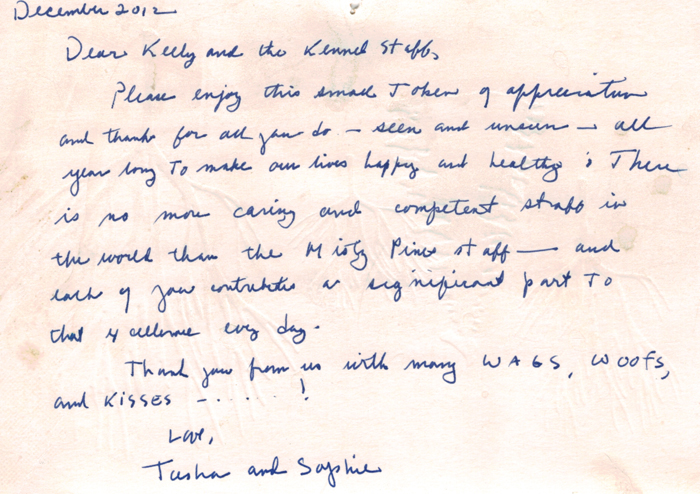 December 2012
Dear Kelly and the Kennel Staff,
Please enjoy this small Token of appreciation
and thanks for all you do – seen and unseen – all
year long To make our lives happy and healthy! There
is no more caring and competent staff in
the world than the Misty Pines staff — and
each of you contributes a significant part To
that excellence every day.
Thank you from us with many WAGS, WOOFS,
and KISSES – . . . . . !
Love,
Tasha and Sophie